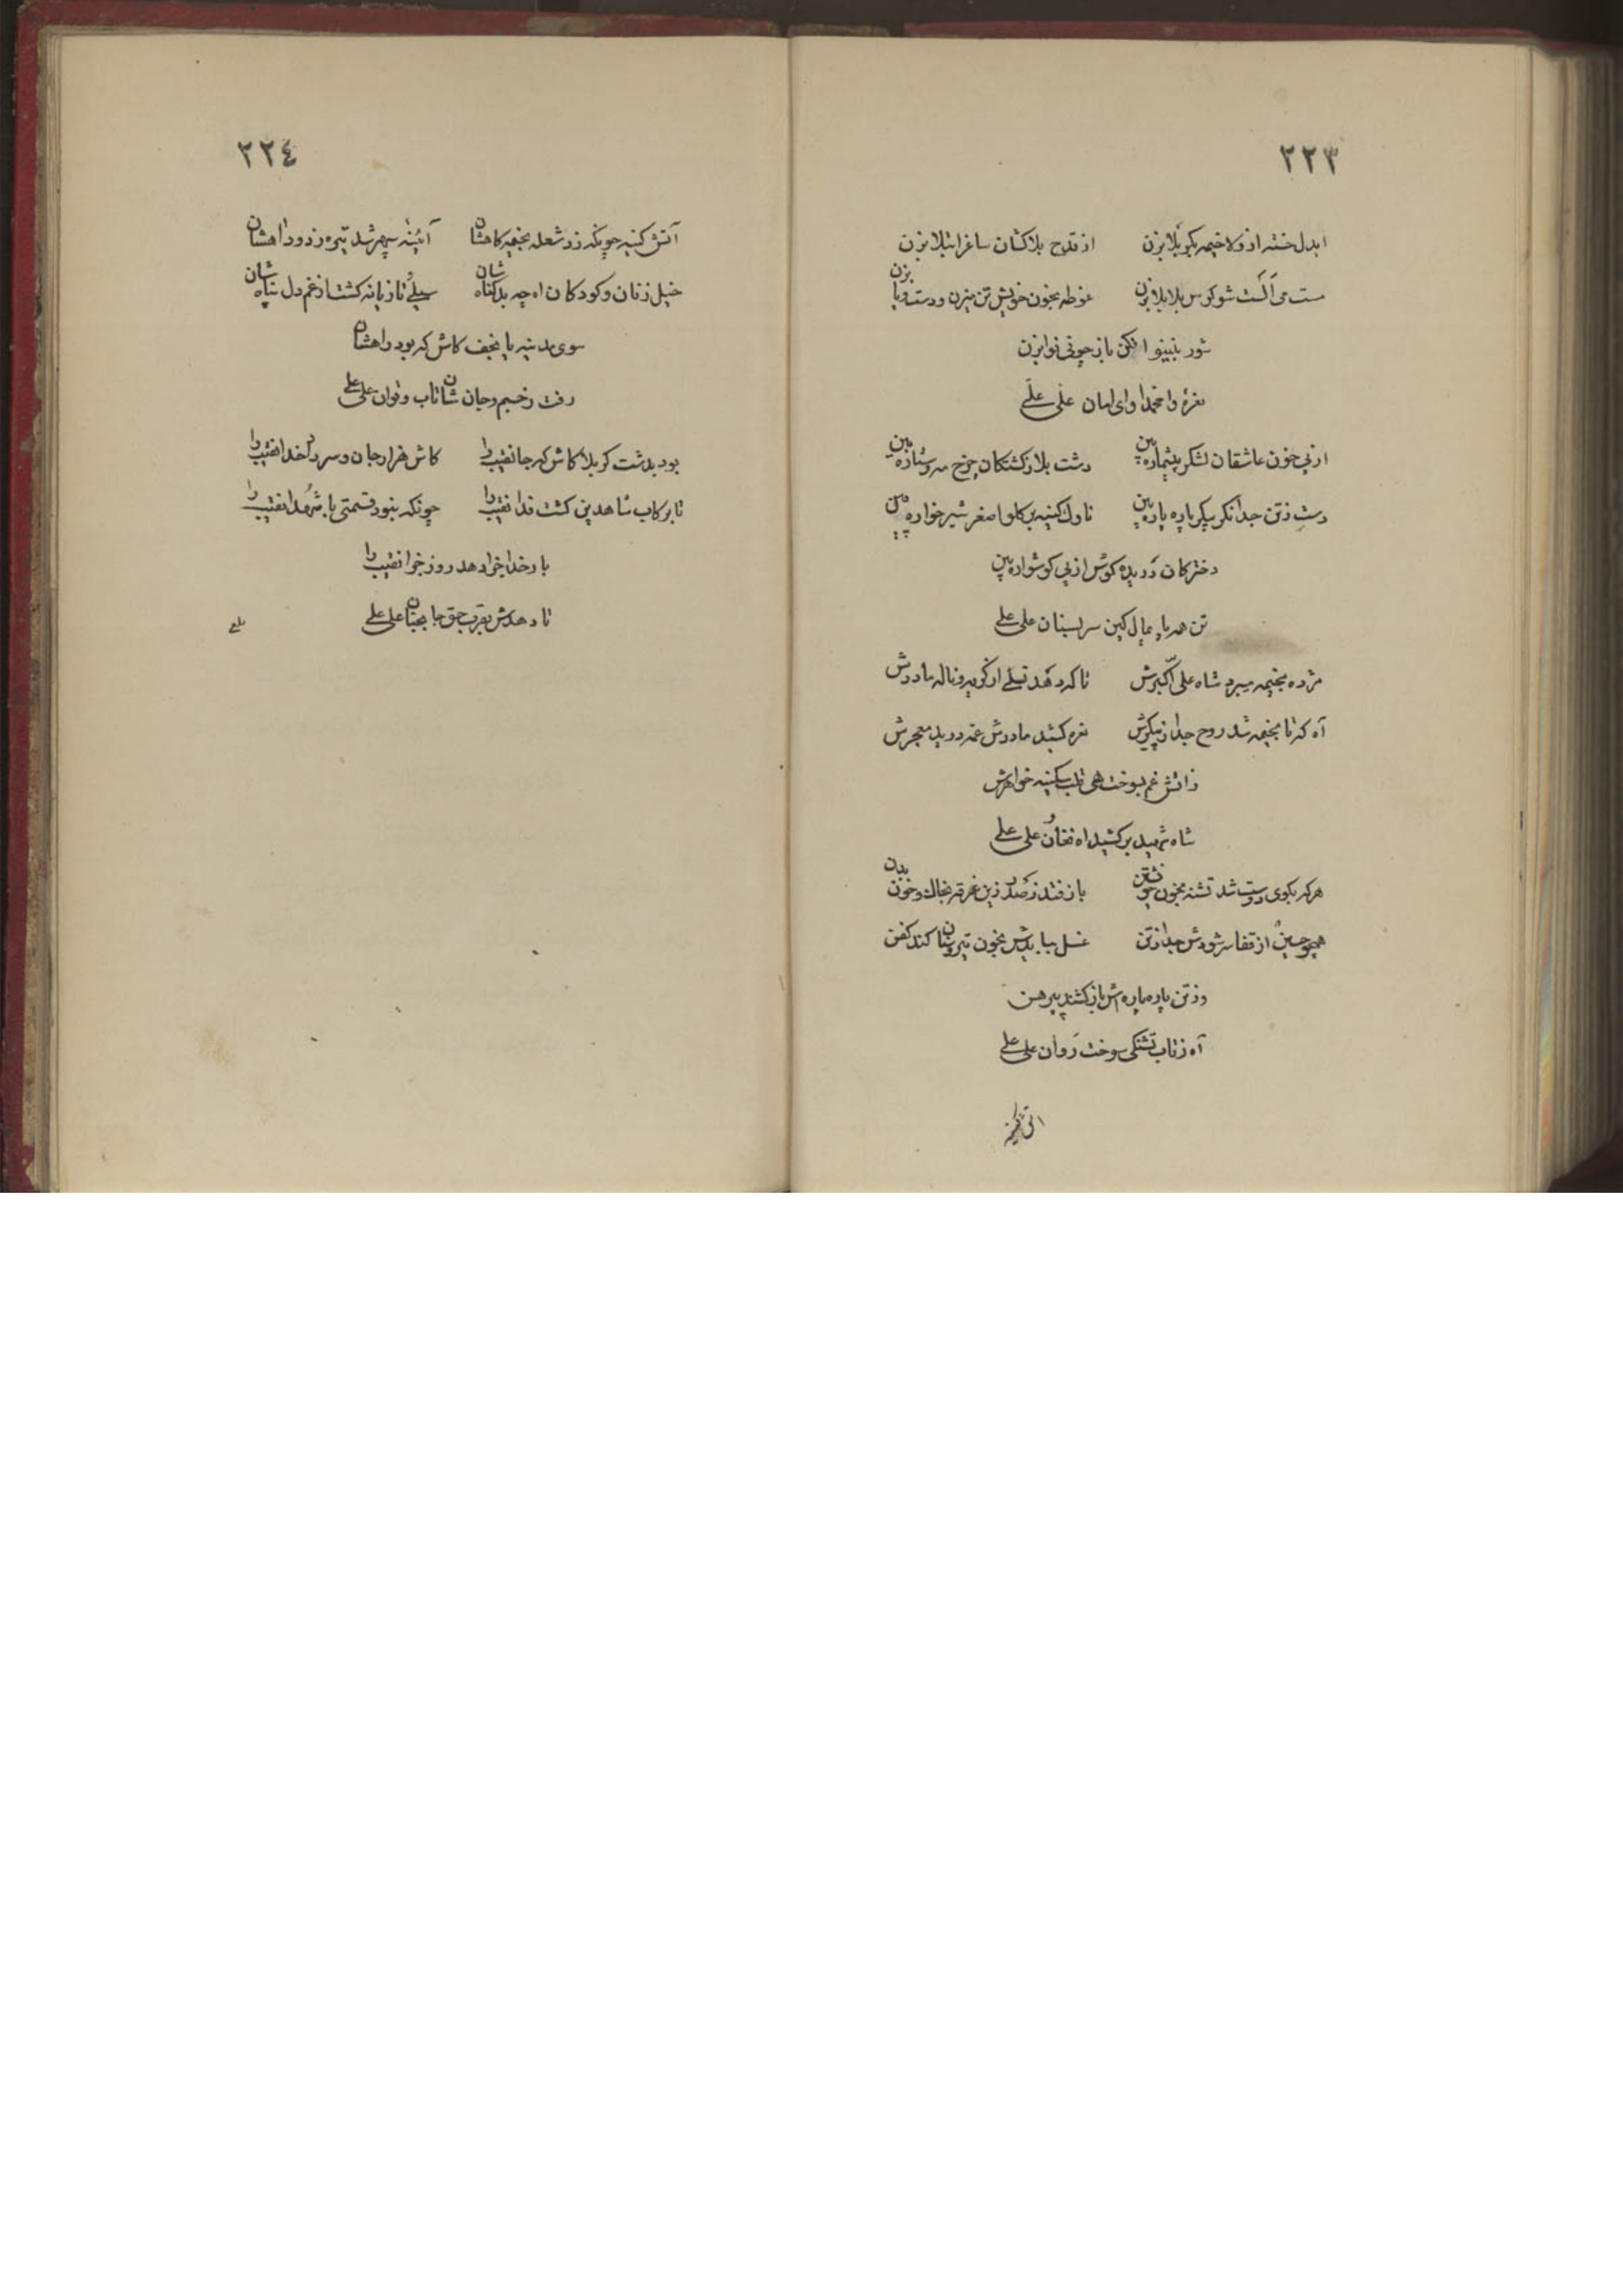 ٢٢٣
ایدل خسته از ولا خیمه بکربلا بزن از قدح بلاکشان ساغر ابتلا بزن
مست می الست شو کوس بلا بلا بزن غوطه بخون خویشتن میزن و دست و پا بزن
شور بنینوا فکن باز چو نی نوا بزن
نعرهٔ وا محمدا وای امان علی علی
از پی خون عاشقان لشکر بیشماره بین دشت بلا ز کشتکان چرخ مه و ستاره بین
دست ز تن جدا نکر پیکر پاره پاره بین ناوک کینه بر کلو اصغر شیرخواره بین
دخترکان دریده کوش از پی کوشواره بین
تن همه پایمال کین سر بسنان علی علی
مژده بخیمه میبرد شاه علی اکبرش تا که دهد تسلی از کریه و ناله مادرش
آه که تا بخیمه شد روح جدا ز پیکرش نعره کشید مادرش عمه درید معجرش
ز اتش غم بسوخت هی قلب سکینه خواهرش
شاه شهید برکشید اه و فغان علی علی
هر که بکوی دوست شد تشنه بخون خویشتن باز فتد ز صدر زین غرقه بخاک و خون بدن
همچو حسین از قفا سر شودش جدا ز تن غسل بیابدش بخون تیر و سنان کند کفن
وز تن پاره پاره اش باز کشند پیرهن
آه ز تاب تشنکی سوخت روان علی علی
اتش کینه
٢٢٤
آتش کینه چونکه زد شعله بخیمه کاهشان آئینهٔ سپهر شد تیره ز دود اهشان
خیل زنان و کودکان اه چه بد کناهشان سیلی و تازیانه کشت از غم دل پناهشان
سوی مدینه یا نجف کاش که بود راهشان
رفت ز جسم و جان شان تاب و توان علی علی
بود بدشت کربلا کاش که جا نقیب را کاش هزار جان و سر در ره خدا نقیب را
تا برکاب شاهدین کشت فدا نقیب را چونکه نبود قسمتی با شهدا نقیب را
بار خدا جزا دهد روز جزا نقیب را
تا دهدش بقرب حق جا بجنان علی علی